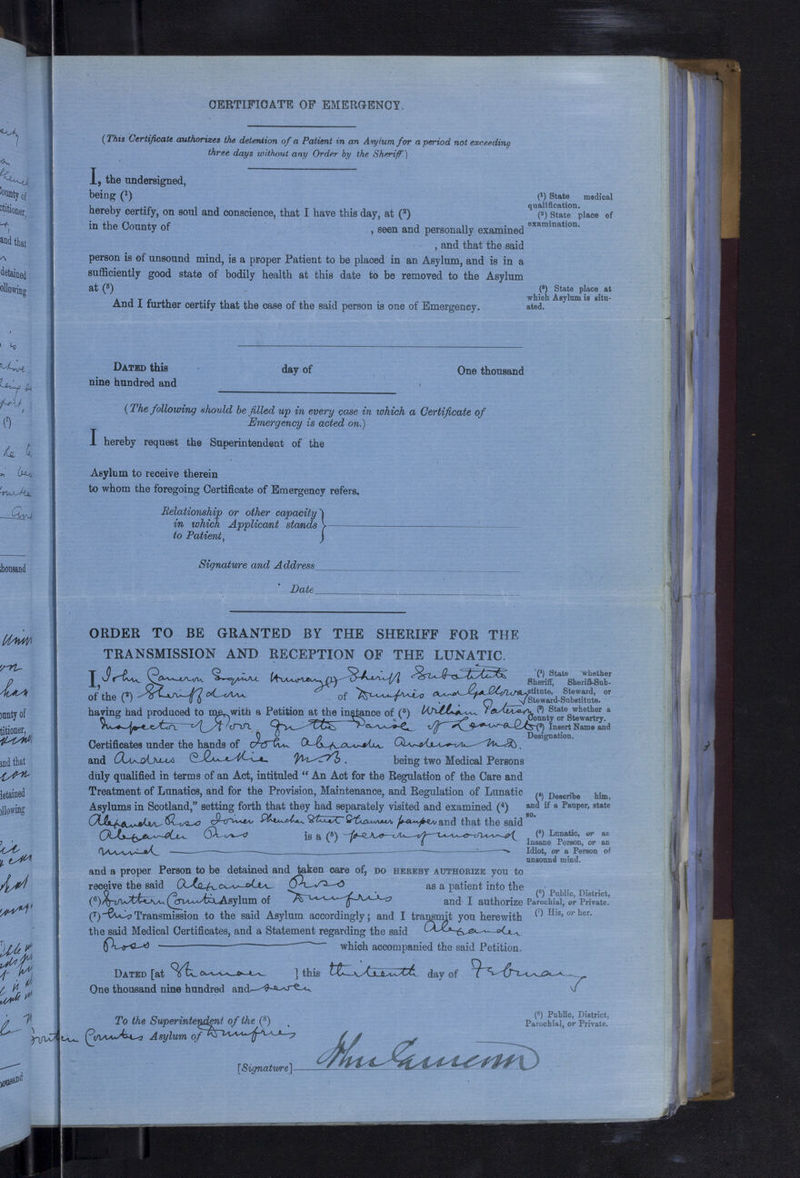 CERTIFICATE OF EMERGENCY.
(This Certificate authorizes the detention of a Patient in an Asylum for a period not exceeding
three days without any Order by the Sheriff)
I, the undersigned,
being (¹)
hereby certify, on soul and conscience, that I have this day, at (²)
in the County of , seen and personally examined
, and that the said
person is of unsound mind, is a proper Patient to be placed in an Asylum, and is in a
sufficiently good state of bodily health at this date to be removed to the Asylum
at (³)
And I further certify that the case of the said person is one of Emergency.
(¹) State medical
qualification.
(²) State place of
examination.
(³) State place at
which Asylum is situ-
ated.
DATED this day of One thousand
nine hundred and
(The following should be filled up in every case in which a Certificate of
Emergency is acted on.)
I hereby request the Superintendent of the
Asylum to receive therein
to whom the foregoing Certificate of Emergency refers.
Relationship or other capacity
in which Applicant stands
to Patient,
Signature and Address
Date
ORDER TO BE GRANTED BY THE SHERIFF FOR THE
TRANSMISSION AND RECEPTION OF THE LUNATIC.
I, John Cameron Esquire Honorary (¹) Sheriff Substitute
of the (²) Sheriffdom of Dumfries and Galloway
having had produced to me, with a Petition at the instance of (³) William Paterson
Inspector of Poor for the Parish of Leswalt
Certificates under the hands of John Alexander Anderson M.D.
and Andrew M.B. being two Medical Persons
duly qualified in terms of an Act, intituled “ An Act for the Regulation of the Care and
Treatment of Lunatics, and for the Provision, Maintenance, and Regulation of Lunatic
Asylums in Scotland,” setting forth that they had separately visited and examined (⁴)
Alexander Ross Joiner Sheuchan Street Stranraer pauper and that the said
Alexander Ross is a (⁵) person of unsound
mind
and a proper Person to be detained and taken care of, DO HEREBY AUTHORIZE you to
receive the said Alexander Ross as a patient into the
(⁶) Southern Counties Asylum of Dumfries and I authorize
(⁷) his Transmission to the said Asylum accordingly; and I transmit you herewith
the said Medical Certificates, and a Statement regarding the said Alexander
Ross which accompanied the said Petition.
DATED [at Stranraer ] this thirteenth day of February
One thousand nine hundred and seven
To the Superintendent of the (⁸)
Southern Counties Asylum of Dumfries
[Signature] John Cameron
(¹) State whether
Sheriff, Sheriff-Sub-
stitute, Steward, or
Steward-Substitute.
(²) State whether a
County or Stewartry.
(³) Insert Name and
Designation.
(⁴) Describe him,
and if a Pauper, state
so.
(⁵) Lunatic, or an
Insane Person, or an
Idiot, or a Person of
unsound mind.
(⁶) Public, District,
Parochial, or Private.
(⁷) His, or her.
(⁸) Public, District,
Parochial, or Private.